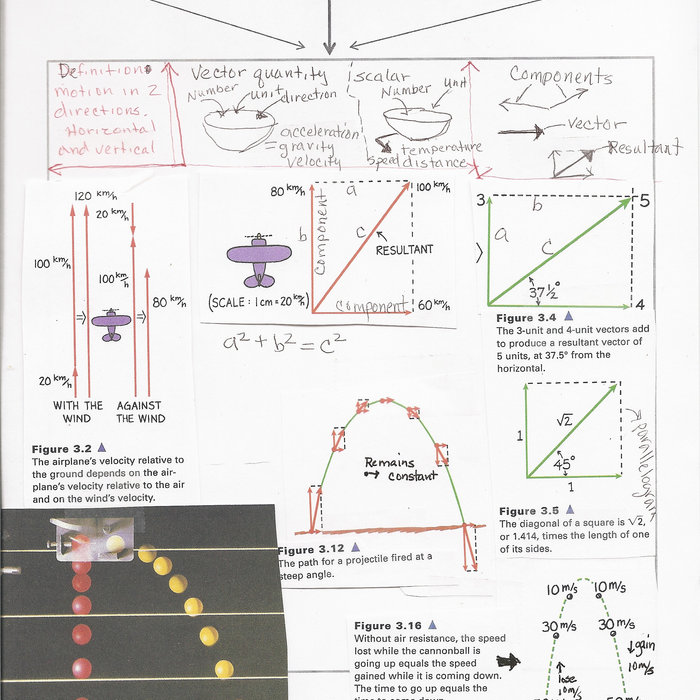 Definition
motion in 2
directions.
Horizontal
and vertical
Vector quantity
Number unit direction
acceleration
= gravity
velocity
scalar
Number unit
temperature
speed distance
Components
vector
Resultant
120 km/h
20 km/h
100 km/h
100 km/h
80 km/h
20 km/h
WITH THE WIND
AGAINST THE WIND
Figure 3.2 ▲
The airplane's velocity relative to
the ground depends on the air-
plane's velocity relative to the air
and on the wind's velocity.
80 km/h
a
100 km/h
b
component
c
RESULTANT
(SCALE: 1 cm = 20 km/h)
component
60 km/h
a² + b² = c²
3
b
5
a
c
37½°
4
Figure 3.4 ▲
The 3-unit and 4-unit vectors add
to produce a resultant vector of
5 units, at 37.5° from the
horizontal.
1
√2
45°
1
parallelogram
Figure 3.5 ▲
The diagonal of a square is √2,
or 1.414, times the length of one
of its sides.
Remains
constant
Figure 3.12 ▲
The path for a projectile fired at a
steep angle.
Figure 3.16 ▲
Without air resistance, the speed
lost while the cannonball is
going up equals the speed
gained while it is coming down.
The time to go up equals the
time to come down.
10 m/s 10 m/s
30 m/s 30 m/s
↓gain
10 m/s
↑
lose
10 m/s